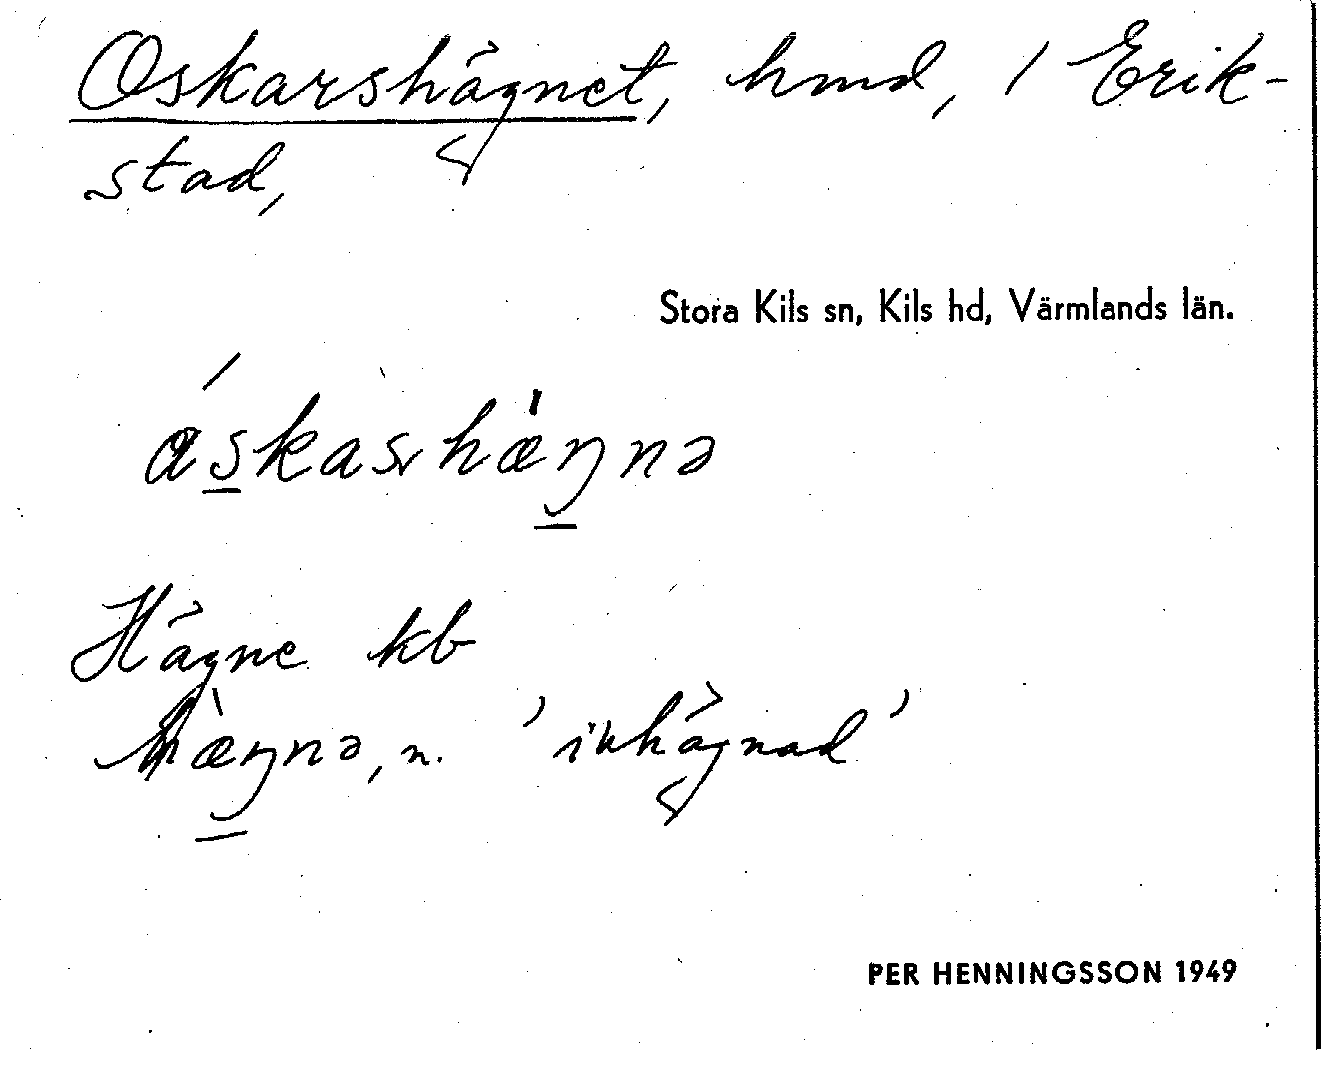 Oskarshägnet, hmd, i Erik-
stad,
Stora Kils sn, Kils hd, Värmlands län.
áskashæ̀ŋnə
Hägne kb
hæ̀ŋnə, n. 'inhägnad'
PER HENNINGSSON 1949